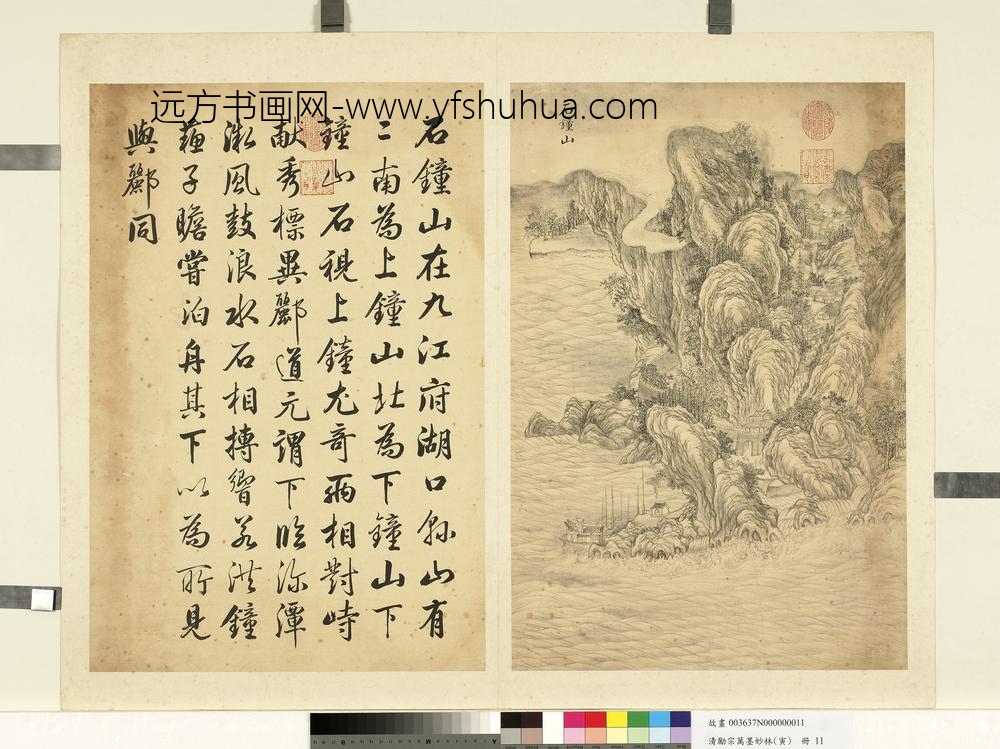 远方书画网-www.yfshuhua.com
石鐘山在九江府湖口縣山有
二南為上鐘山北為下鐘山下
鐘山石視上鐘尤奇兩相對峙
献秀標異酈道元謂下臨深潭
微風鼓浪水石相搏響若洪鐘
蘓子瞻嘗泊舟其下以為所見
與酈同
鐘山
故畫 003637N000000011
清勵宗萬墨妙林(寅) 冊 11